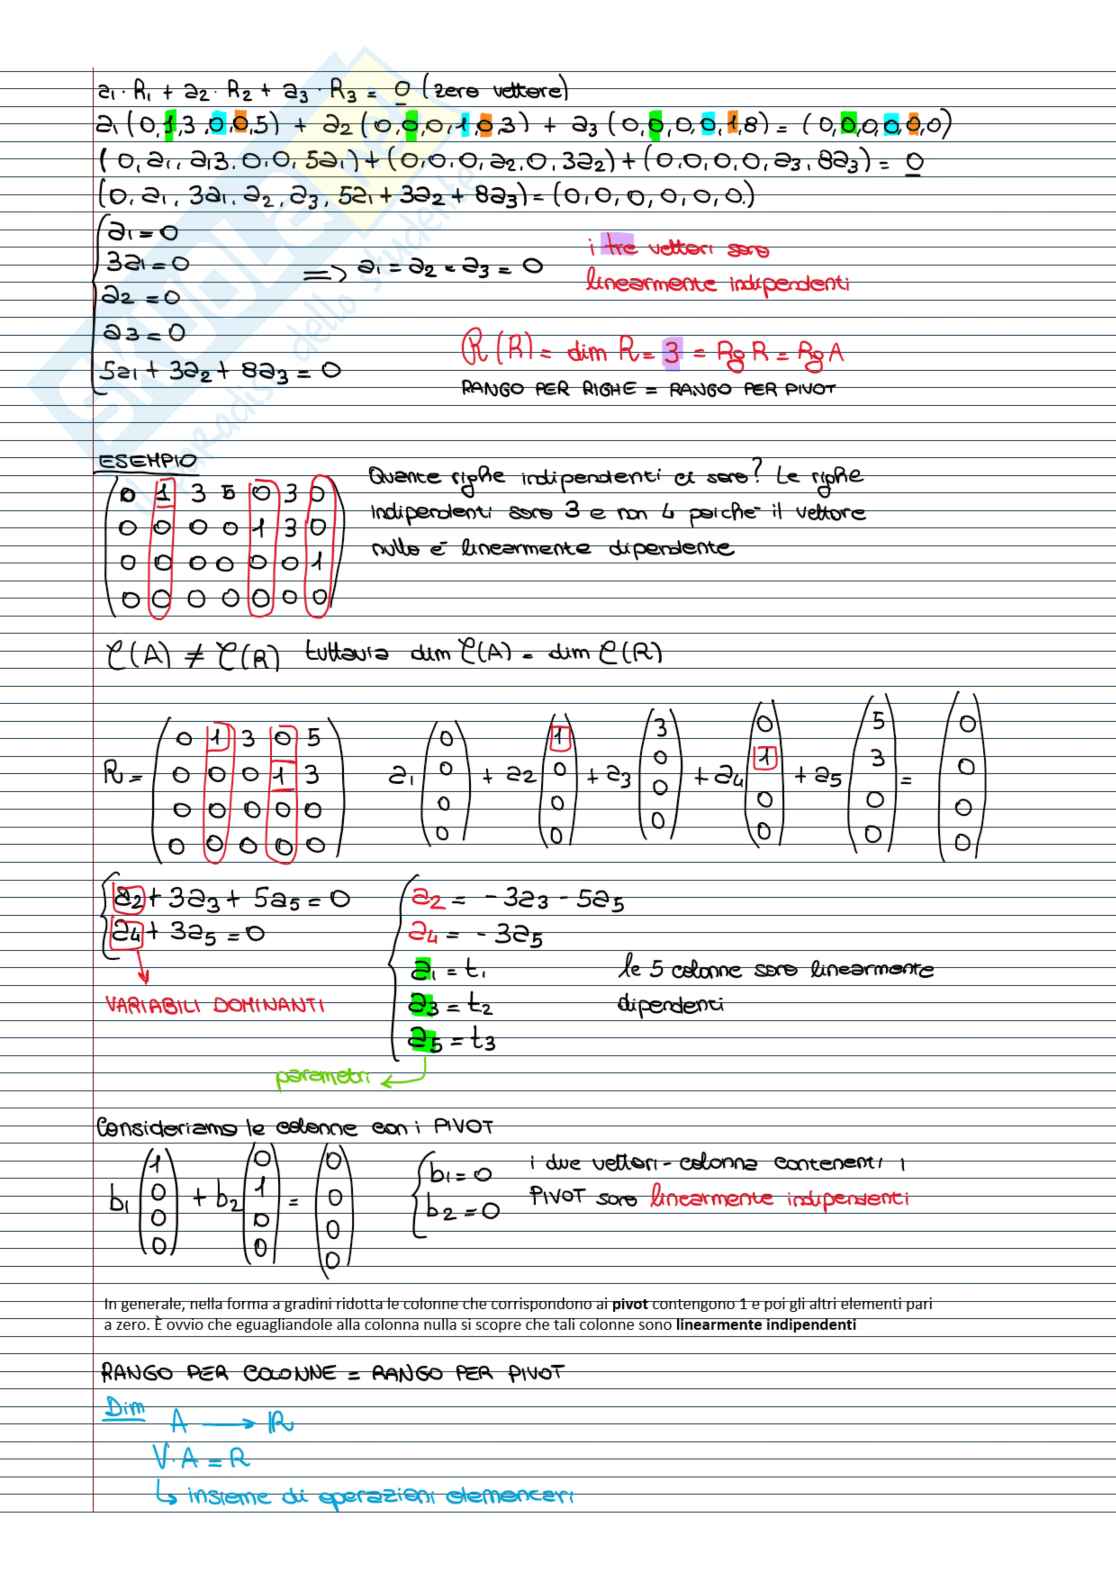 a₁·R₁ + a₂·R₂ + a₃·R₃ = 0 (zero vettore)
a₁(0,1,3,0,0,5) + a₂(0,0,0,1,0,3) + a₃(0,0,0,0,1,8) = (0,0,0,0,0,0)
(0,a₁,a₁3,0,0,5a₁)+(0,0,0,a₂,0,3a₂)+(0,0,0,0,a₃,8a₃) = 0
(0,a₁,3a₁,a₂,a₃,5a₁+3a₂+8a₃)=(0,0,0,0,0,0)
a₁=0
3a₁=0
a₂=0
a₃=0
5a₁+3a₂+8a₃=0
=> a₁=a₂=a₃=0
i tre vettori sono
linearmente indipendenti
R(R)= dim R= 3 = Rg R = Rg A
RANGO PER RIGHE = RANGO PER PIVOT
ESEMPIO
0 1 3 5 0 3 0
0 0 0 0 1 3 0
0 0 0 0 0 0 1
0 0 0 0 0 0 0
Quante righe indipendenti ci sono? Le righe
indipendenti sono 3 e non 4 poiché il vettore
nullo è linearmente dipendente
C(A) ≠ C(R) tuttavia dim C(A) = dim C(R)
R =
0 1 3 0 5
0 0 0 1 3
0 0 0 0 0
0 0 0 0 0
a₁ (0 0 0 0) + a₂ (1 0 0 0) + a₃ (3 0 0 0) + a₄ (0 1 0 0) + a₅ (5 3 0 0) = (0 0 0 0)
a₂+3a₃+5a₅=0
a₄+3a₅=0
VARIABILI DOMINANTI
a₂ = -3a₃-5a₅
a₄ = -3a₅
a₁ = t₁
a₃ = t₂
a₅ = t₃
parametri
le 5 colonne sono linearmente
dipendenti
Consideriamo le colonne con i PIVOT
b₁ (1 0 0 0) + b₂ (0 1 0 0) = (0 0 0 0)
b₁=0
b₂=0
i due vettori-colonna contenenti i
PIVOT sono linearmente indipendenti
In generale, nella forma a gradini ridotta le colonne che corrispondono ai pivot contengono 1 e poi gli altri elementi pari
a zero. È ovvio che eguagliandole alla colonna nulla si scopre che tali colonne sono linearmente indipendenti
RANGO PER COLONNE = RANGO PER PIVOT
Dim
A → R
V·A = R
↳ insieme di operazioni elementari